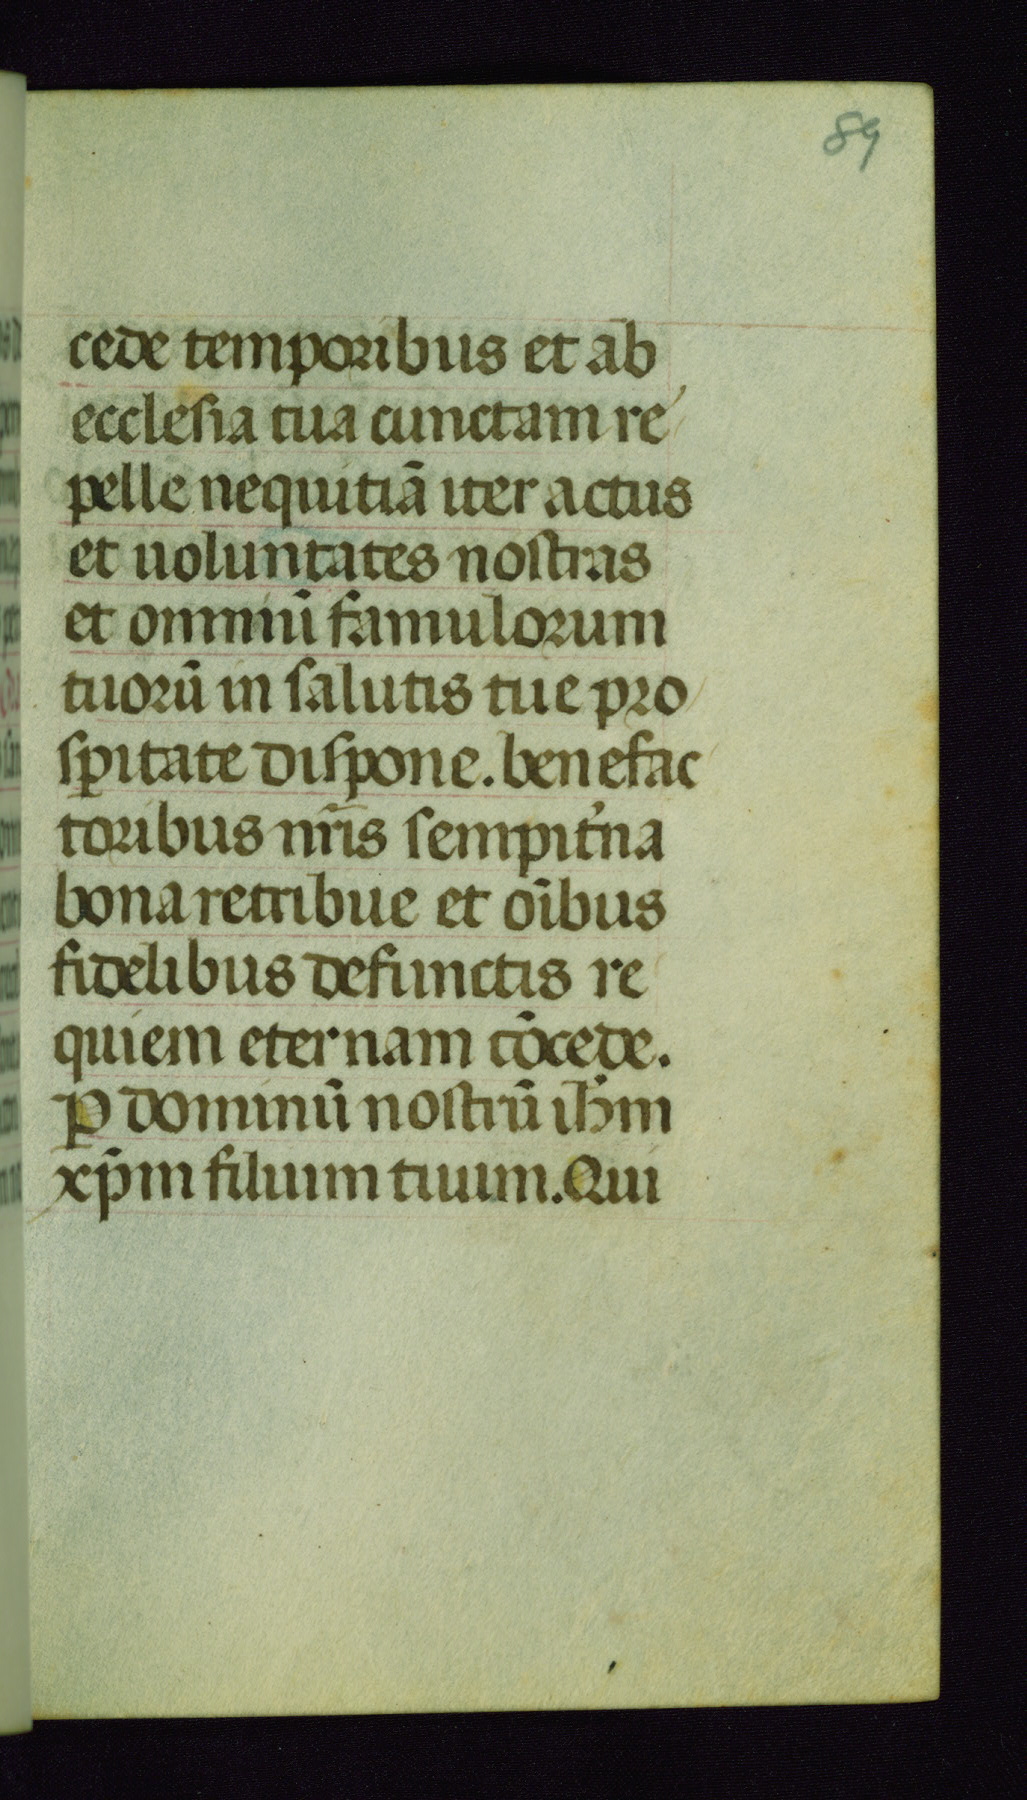 89
cede temporibus et ab
ecclesia tua cunctam re
pelle nequitiā iter actus
et uoluntates nostras
et omniū famulorum
tuorū in salutis tue pro
sꝑitate dispone. benefac
toribus nr̄is sempit̓na
bona retribue et oībus
fidelibus defunctis re
quiem eternam cōcede.
ꝑ dominū nostrū ih̄m
xp̄m filium tuum. Qui